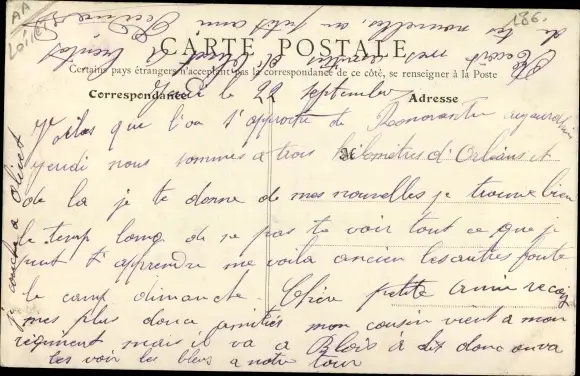 AA
LOIRET
166.
de tes nouvelles, un petit ami
CARTE POSTALE
Certains pays étrangers n'acceptant pas la correspondance de ce côté, se renseigner à la Poste
Correspondance
Adresse
Jeudi le 22 septembre
Voilas que l'on s'approche de Romorantin aujourdhui
jeudi nous sommes a trois kilomètres d'Orléans et
de la je te donne de mes nouvelles je trouve bien
le temp long de ne pas te voir tout ce que je
peut t'apprendre me voila ancien les autres foute
le camp dimanche. Chère petite amie reçoi
mes plus douce amitiés mon cousin vient a mon
régiment mais il va a Blois à dit donc on va
les voir les bleus a notre tour
je couche a Olivet